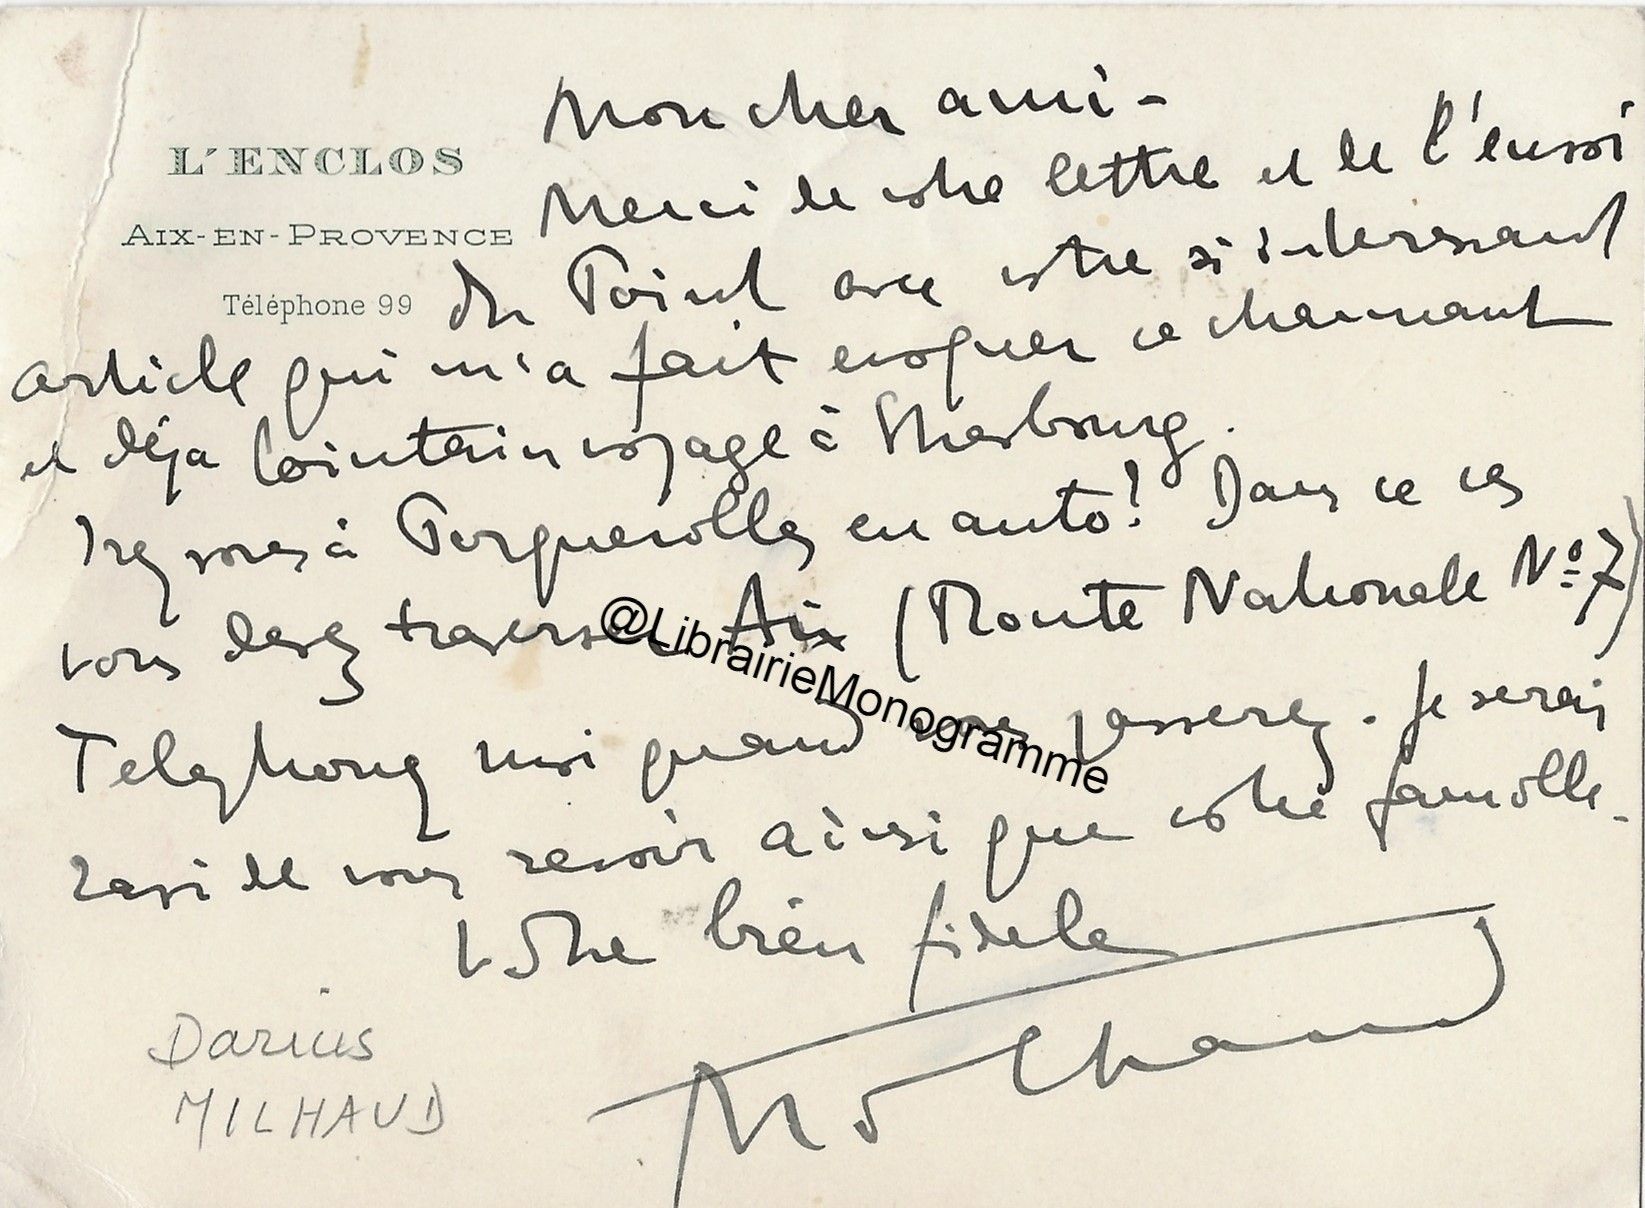 L'ENCLOS
AIX-EN-PROVENCE
Téléphone 99
Mon cher ami -
Merci de votre lettre et de l'envoi
du Point avec votre si interessant
article qui m'a fait evoquer ce charmant
et déja lointain voyage à
Irez vous à Porquerolles en auto! Dans ce cas
vous devez traverser Aix (Route Nationale Nº 7)
Telephonez moi quand vous passerez. Je serai
ravi de vous revoir ainsi que votre famille.
Votre bien fidele
Milhaud
Darius
MILHAUD
@LibrairieMonogramme